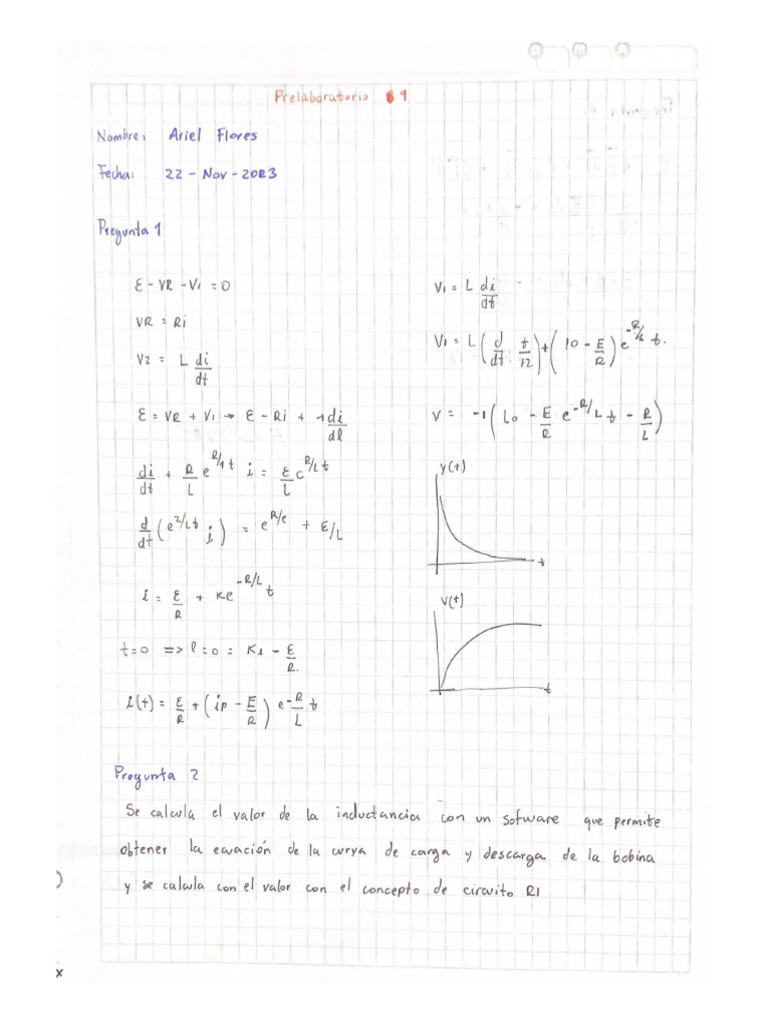 Prelaboratorio 9
Nombre: Ariel Flores
Fecha: 22 - Nov - 2023
Pregunta 1
ε - VR - V1 = 0
VR = Ri
V2 = L di/dt
ε = VR + V1 → ε - Ri + 1 di/dl
di/dt + R/L e^R/1 t i = ε/L c^R/L t
d/dt (e^2/Lt i) = e^R/e + ε/L
i = ε/R + Ke^-R/L t
t=0 => l=0 = K1 - E/R.
i(t) = ε/R + (ip - E/R) e^-R/L t
V1 = L di/dt
V1 = L (d/dt t/12) + (10 - E/R) e^-R/L t.
V = -1 (Lo - E/R e^-R/L t - R/L)
y(t)
t
V(t)
t
Pregunta 2
Se calcula el valor de la inductancia con un sofware que permite
obtener la ecuación de la curya de carga y descarga de la bobina
y se calcula con el valor con el concepto de circuito Rl
x